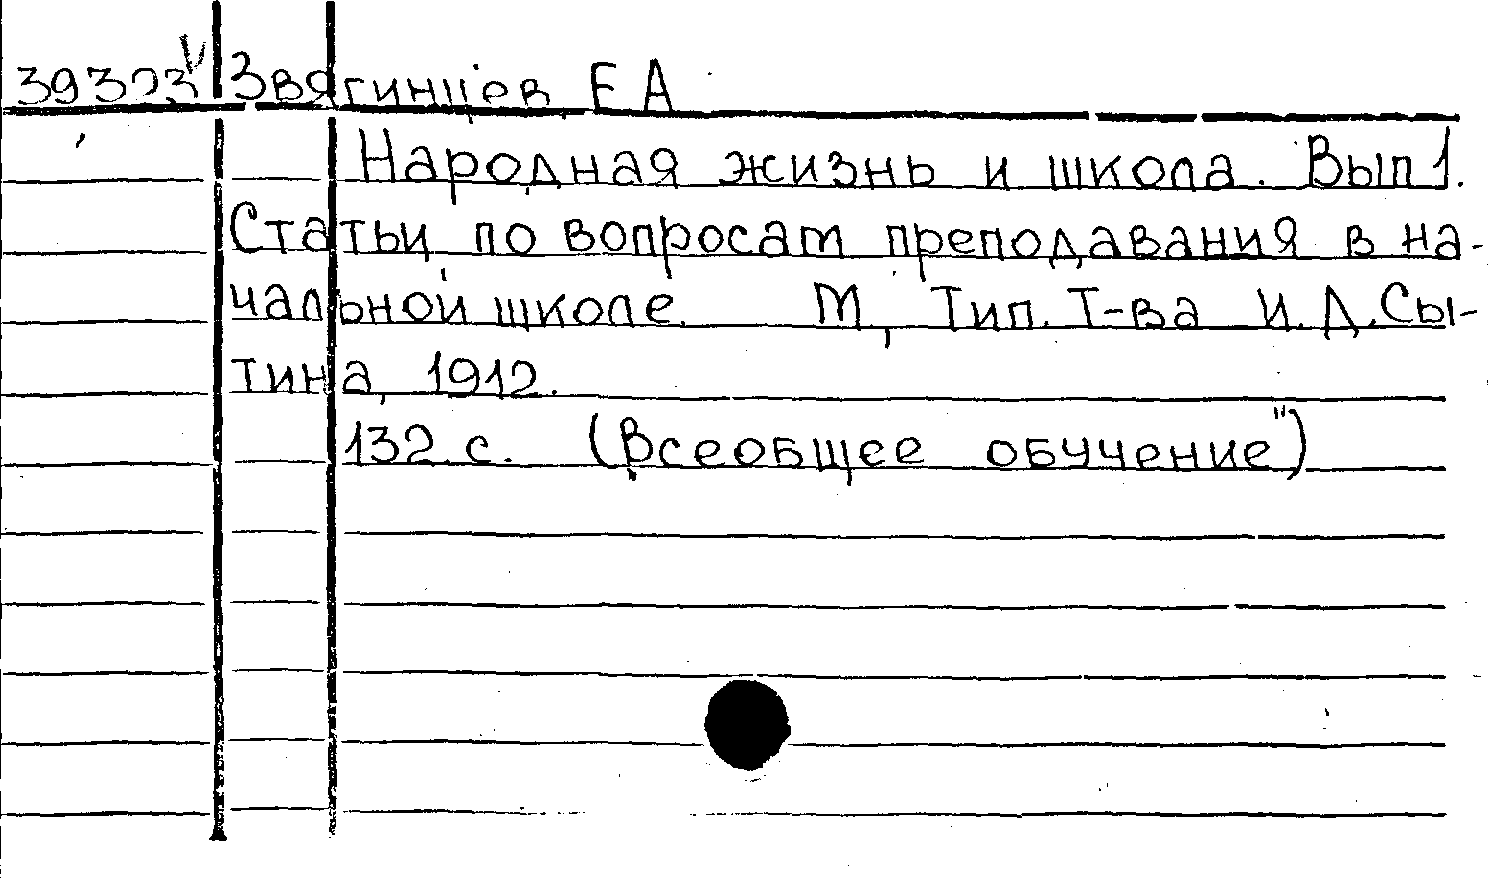 39323 Звягинцев Е А
Народная жизнь и школа. Вып 1.
Статьи по вопросам преподавания в на-
чальной школе. М, Тип. Т-ва И. Д. Сы-
тина, 1912.
132 с. (Всеобщее обучение")